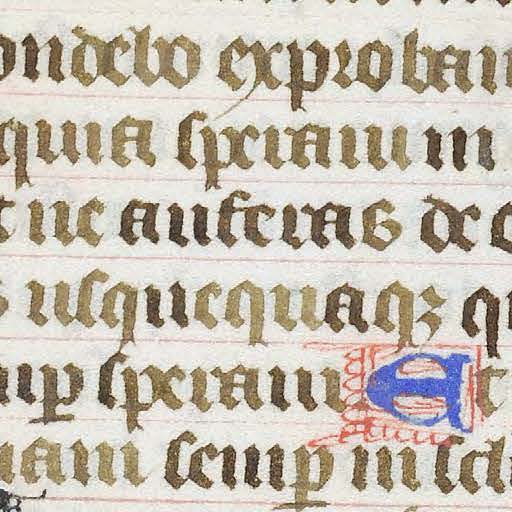 ondebo exproban
quia speraui in
t ne auferas de
usquequaqz q
sup speraui Et
semp in